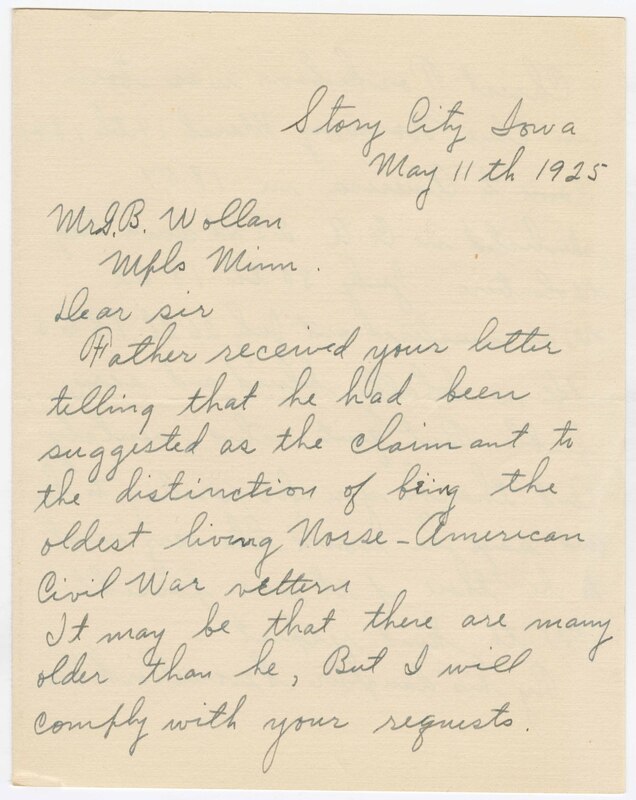 Story City Iowa
May 11th 1925
Mr G.B. Wollan
Mpls Minn.
Dear sir
Father received your letter
telling that he had been
suggested as the claimant to
the distinction of being the
oldest living Norse-American
Civil War vettern
It may be that there are many
older than he, But I will
comply with your requests.